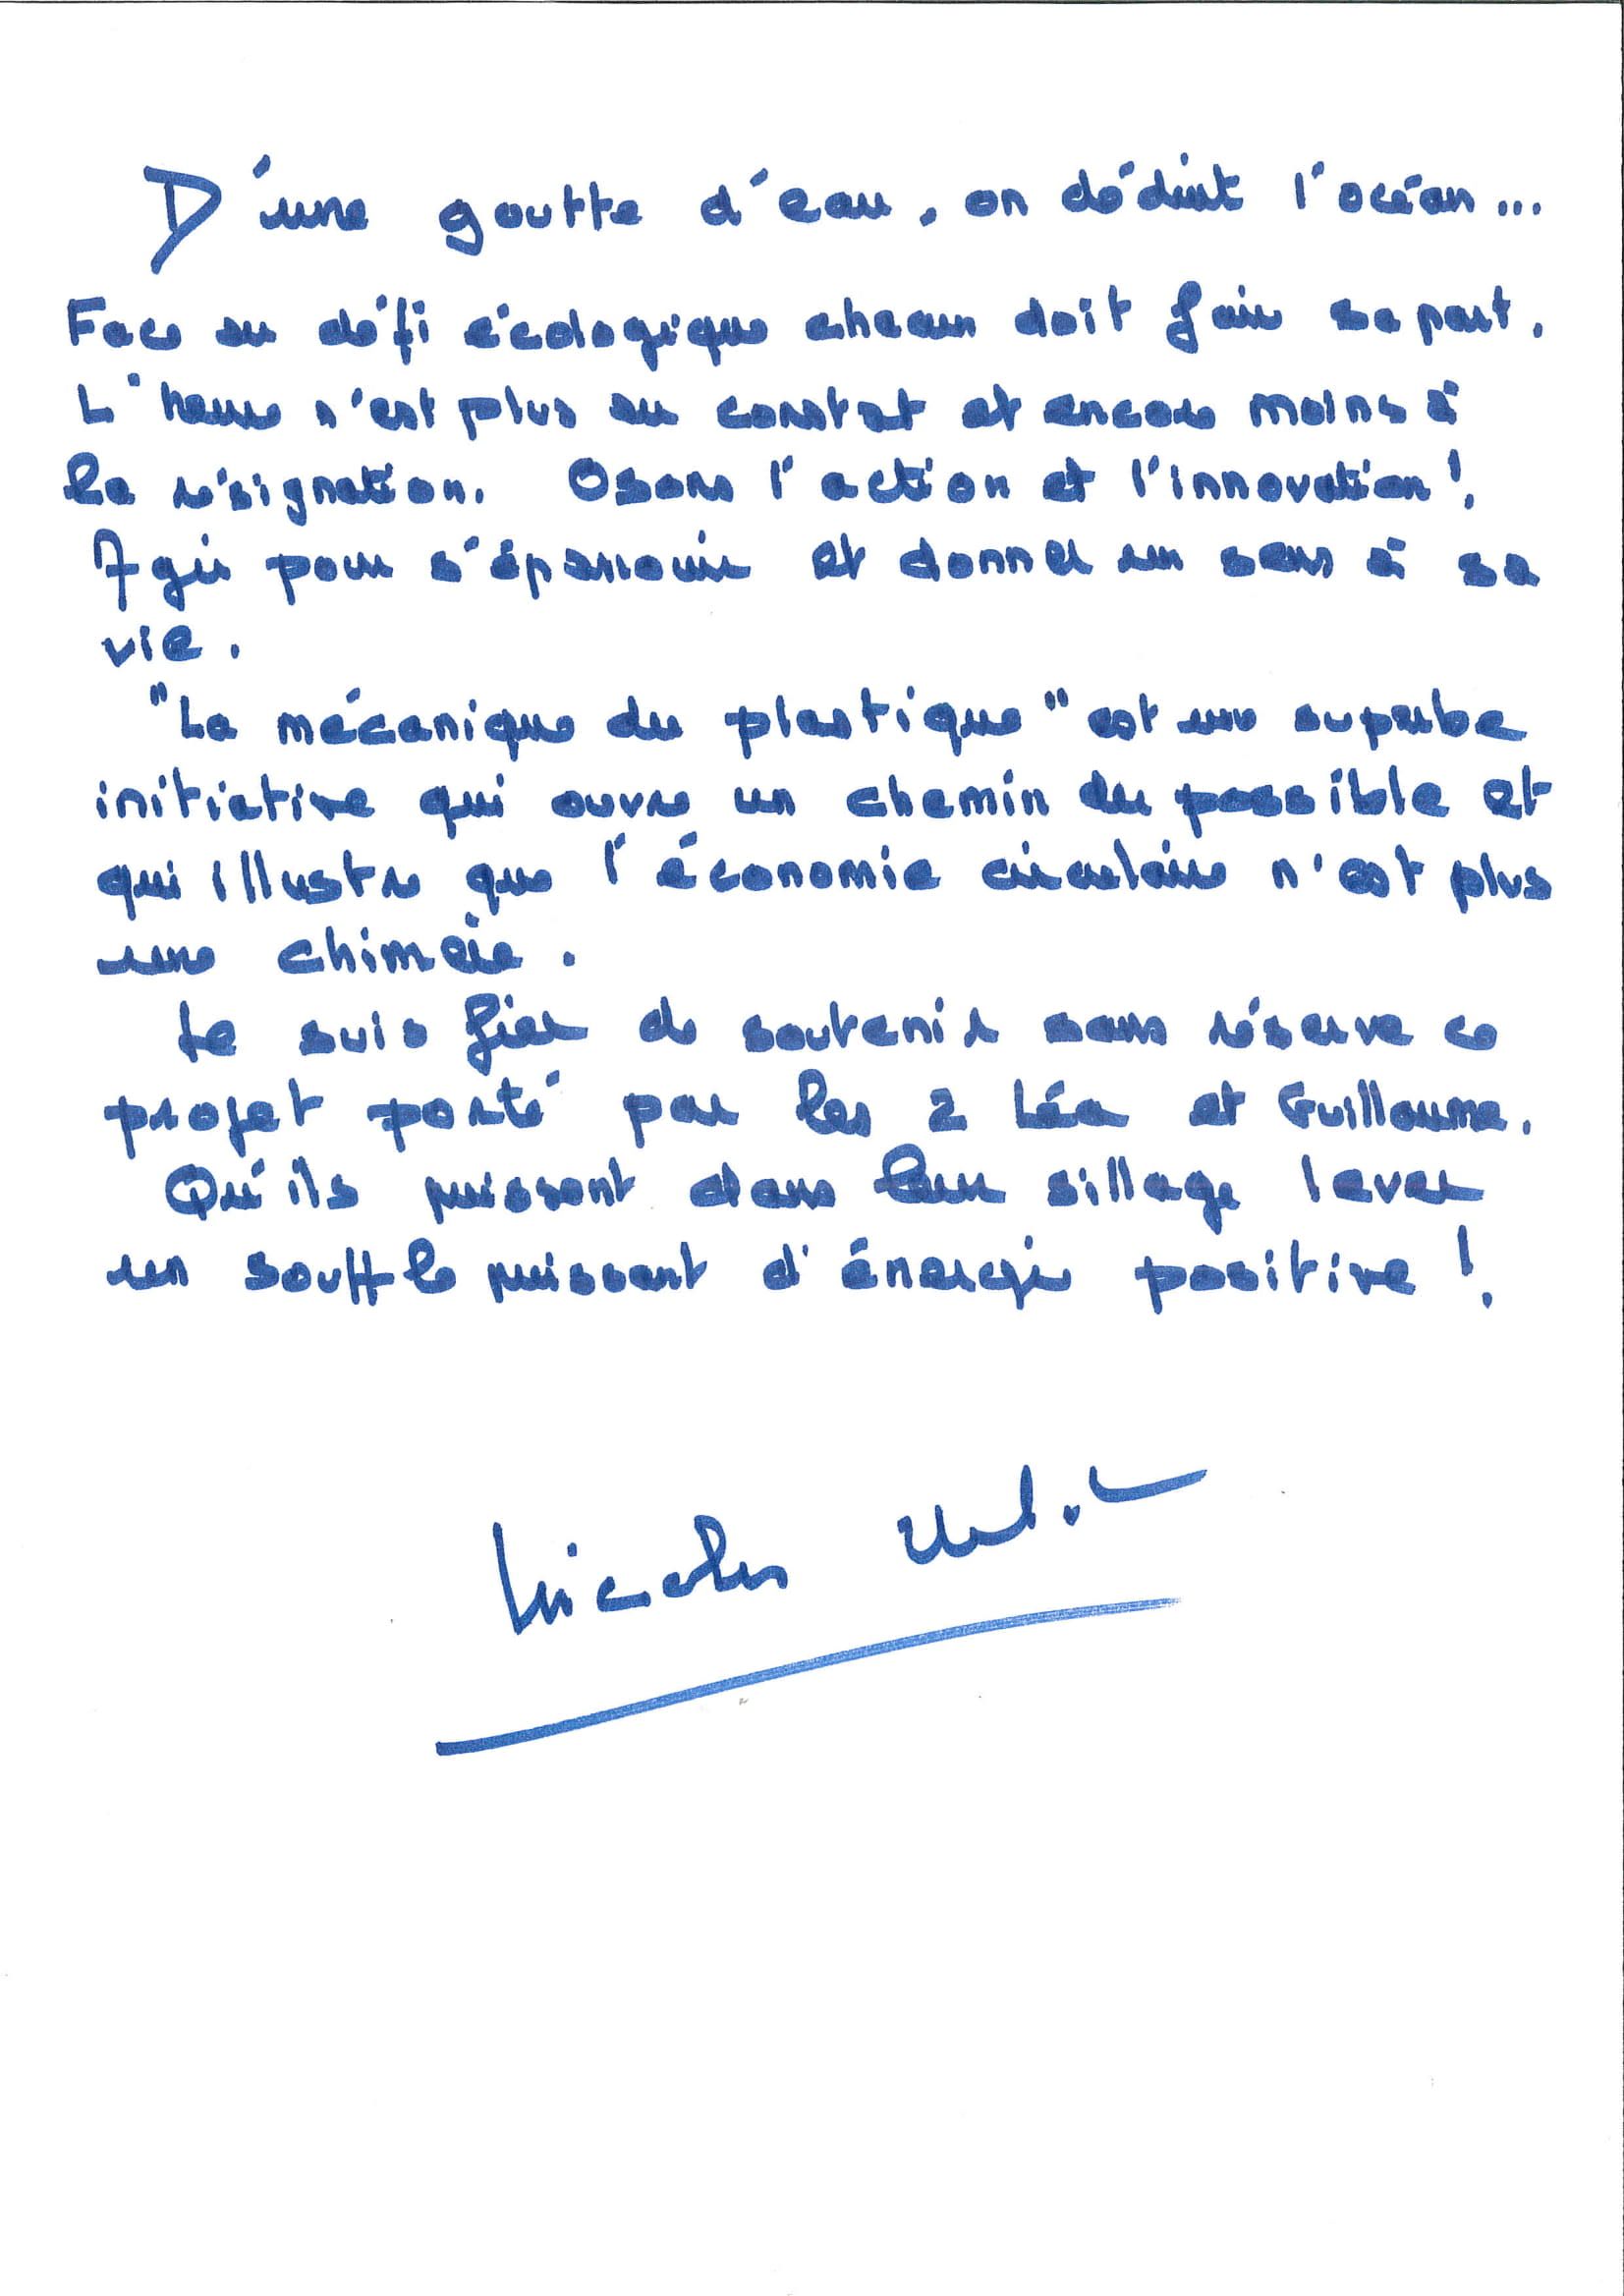 D'une goutte d'eau, on déduit l'océan...
Face au défi écologique chacun doit faire sa part.
L'heure n'est plus au constat et encore moins à
la résignation. Osons l'action et l'innovation !
Agir pour s'épanouir et donner un sens à sa
vie.
"La mécanique du plastique" est une superbe
initiative qui ouvre un chemin du possible et
qui illustre que l'économie circulaire n'est plus
une chimère.
Je suis fier de soutenir sans réserve ce
projet porté par les 2 Léa et Guillaume.
Qu'ils puissent dans leur sillage lever
un souffle puissant d'énergie positive !
Nicolas Hulot